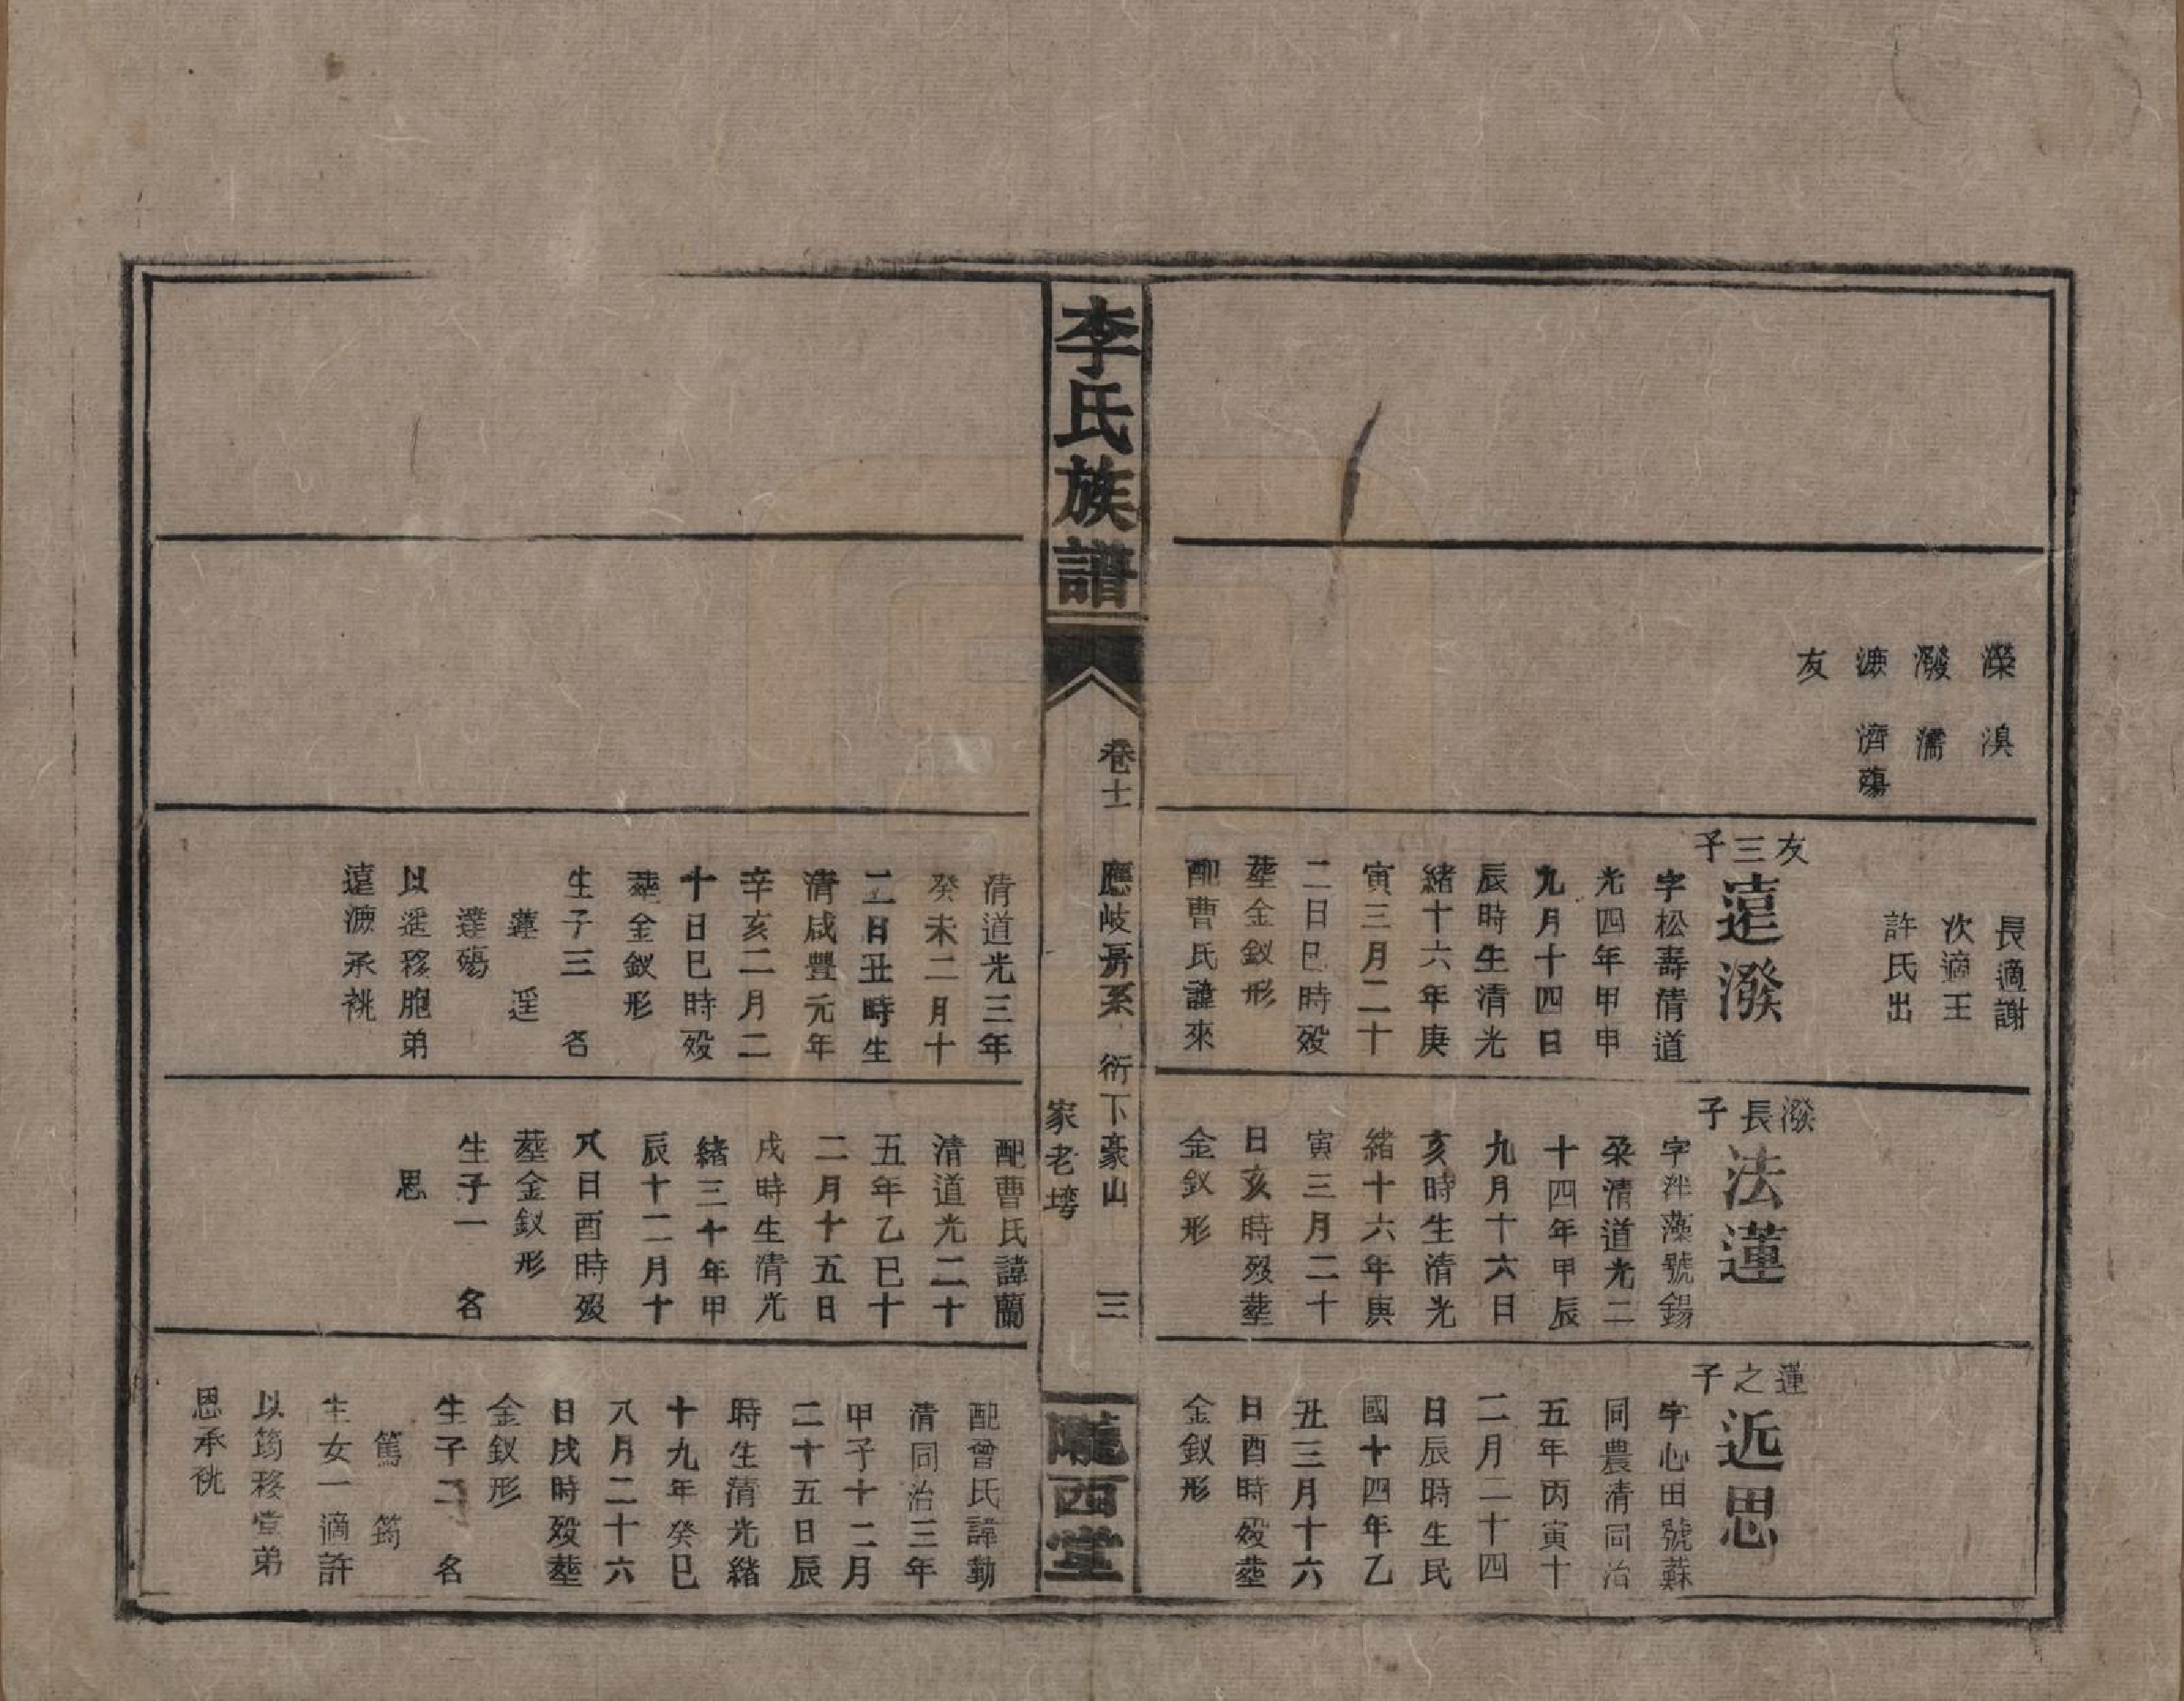 濚溴
潑濡
㴑濟蕩
友
長適謝
次適王
許氏出
友三子
遠潑
字松壽清道
光四年甲申
九月十四日
辰時生清光
緒十六年庚
寅三月二十
二日巳時殁
塟金釵形
配曹氏諱來
潑長子
法蓮
字泮藻號錫
琹清道光二
十四年甲辰
九月十六日
亥時生清光
緒十六年庚
寅三月二十
日亥時殁塟
金釵形
蓮之子
近思
字心田號蘇
同農清同治
五年丙寅十
二月二十四
日辰時生民
國十四年乙
丑三月十六
日酉時殁塟
金釵形
李氏族譜
卷十一
應岐房系
衍下豪山
家老塆
三
隴西堂
清道光三年
癸未二月十
二日丑時生
清咸豐元年
辛亥二月二
十日巳時殁
塟金釵形
生子三 名
蓮 逕
達殤
以遥移胞弟
遠㴑承祧
配曹氏諱蘭
清道光二十
五年乙巳十
二月十五日
戌時生清光
緒三十年甲
辰十二月十
八日酉時殁
塟金釵形
生子一 名
思
配曾氏諱勤
清同治三年
甲子十二月
二十五日辰
時生清光緒
十九年癸巳
八月二十六
日戌時殁塟
金釵形
生子二 名
篤 筠
生女一適許
以筠移堂弟
恩承祧